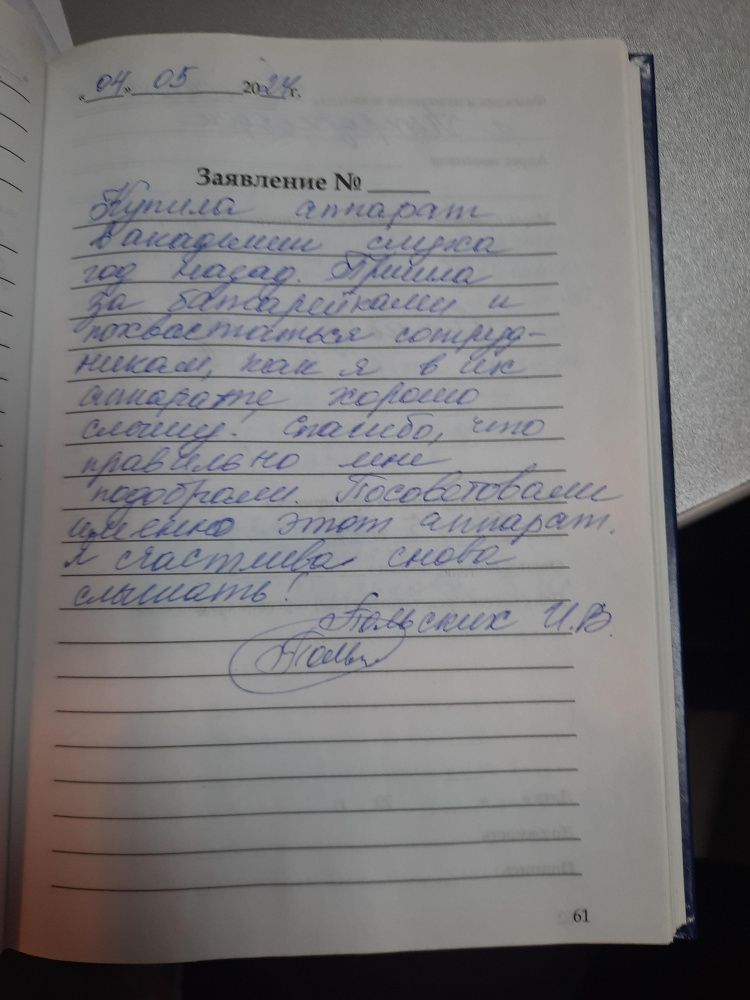 «04» 05 2024г.
Заявление № ____
Купила аппарат
в академии слуха
год назад. Пришла
за батарейками и
похвастаться сотруд-
никам, как я в их
аппарате, хорошо
слышу! Спасибо, что
правильно мне
подобрали. Посоветовали
именно этот аппарат.
Я счастлива снова
слышать!
Польских И.В.
61